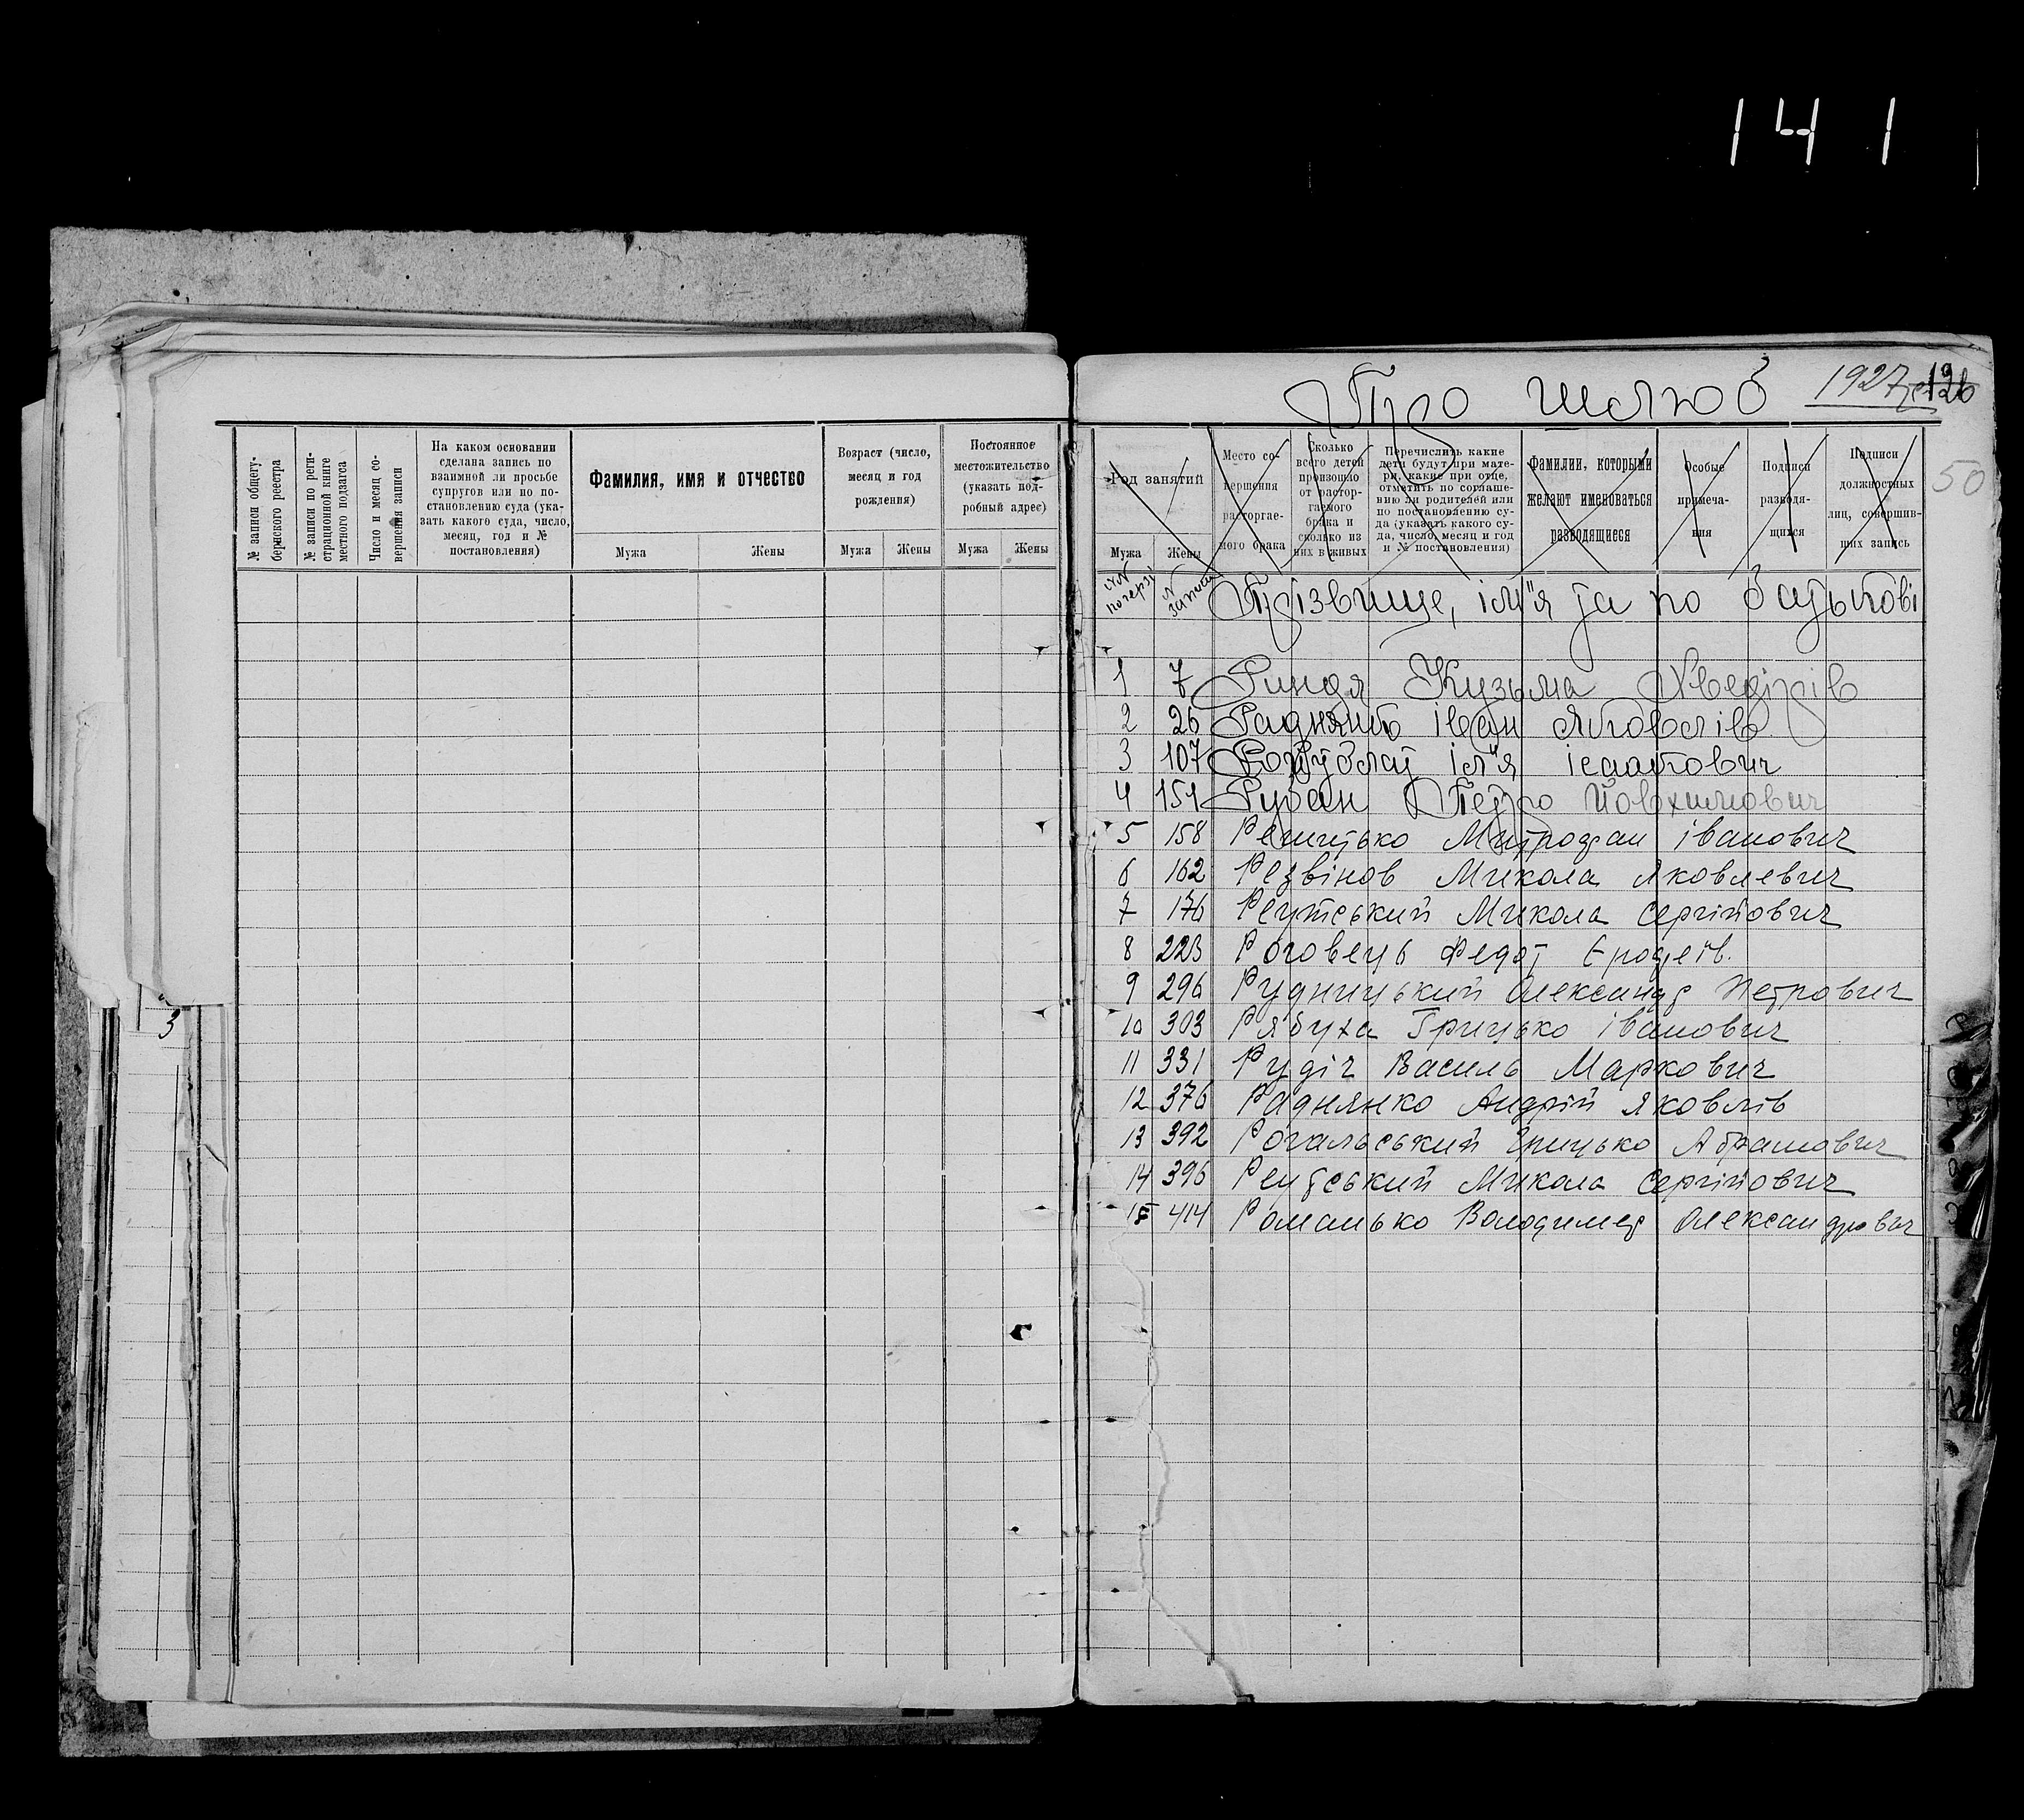 141
Про шлюб 1927
50
№ записи общегубернского реестра
№ записи по регистрационной книге местного подзагса
Число и месяц совершения записи
На каком основании
сделана запись по
взаимной ли просьбе
супругов или по по-
становлению суда (ука-
зать какого суда, число,
месяц, год и №
постановления)
Фамилия, имя и отчество
Мужа Жены
Возраст (число,
месяц и год
рождения)
Мужа Жены
Постоянное
местожительство
(указать под-
робный адрес)
Мужа Жены
Род занятий
Мужа Жены
Место со-
вершения
расторгае-
мого брака
Сколько
всего детей
произошло
от растор-
гаемого
брака и
сколько из
них в живых
Перечислить какие
дети будут при мате-
ри, какие при отце,
отметить по соглаше-
нию ли родителей или
по постановлению су-
да (указать какого су-
да, число, месяц и год
и № постановления)
Фамилии, которыми
желают именоваться
разводящиеся
Особые
примеча-
ния
Подписи
разводя-
щихся
Подписи
должностных
лиц, совершив-
ших запись
№№ по черзі № запису Прізвище, ім"я та по батькові
1 7 Риндя Кузьма Хведірів
2 26 Раднянко іван Яковлів
3 107 ілля ісаакович
4 151 Рубан Петро Йовхимович
5 158 Решитько Митрофан іванович
6 162 Резвінов Микола Яковлевич
7 176 Реутський Микола Сергійович
8 223 Роговець Федот Єрофеїв.
9 296 Рудницький Олександр Петрович
10 303 Рябуха Грицько іванович
11 331 Рудіч Василь Маркович
12 376 Раднянко Андрій Яковлів
13 392 Рогальський Грицько Абрамович
14 396 Реутський Микола Сергійович
15 414 Романько Володимер Олександрович
3